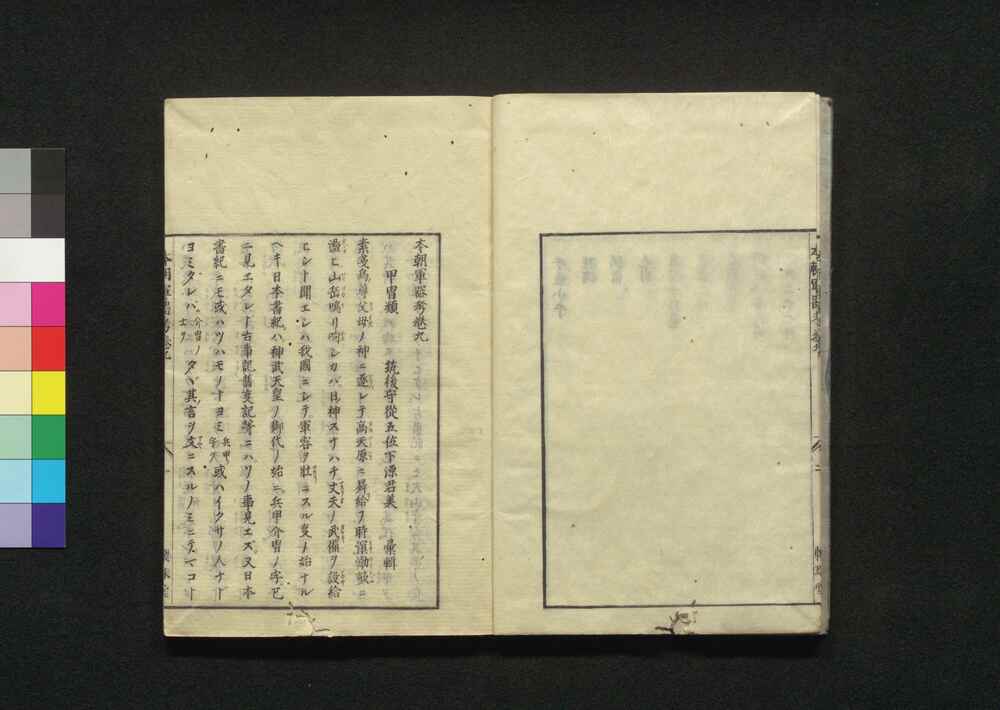 本朝軍器考巻九
甲冑類 筑後守從五位下源君美 彙輯
素戔烏尊父母ノ神ニ逐レテ高天原ニ昇給フ時溟渤皷ニ
盪ヒ山岳鳴リ呴レカバ日神スナハチ丈夫ノ武備ヲ設給
ヒシト聞エシハ我國ニシテ軍容ヲ壯ニスル叓ノ始ナル
ヘキ日本書紀ハ神武天皇ノ御代ノ始ニ兵甲介冑ノ字已
ニ見エタレト古事記舊叓記等ニハソノ事見エズ又日本
書紀ニモ或ハツハモノトヨミ 兵甲ノ字ヲ 或ハイクサノ人ナト
ヨミタレハ 介冑ノ士ヲ タヾ其言ヲ文ニスルノミニテマコト
本朝軍器考巻九